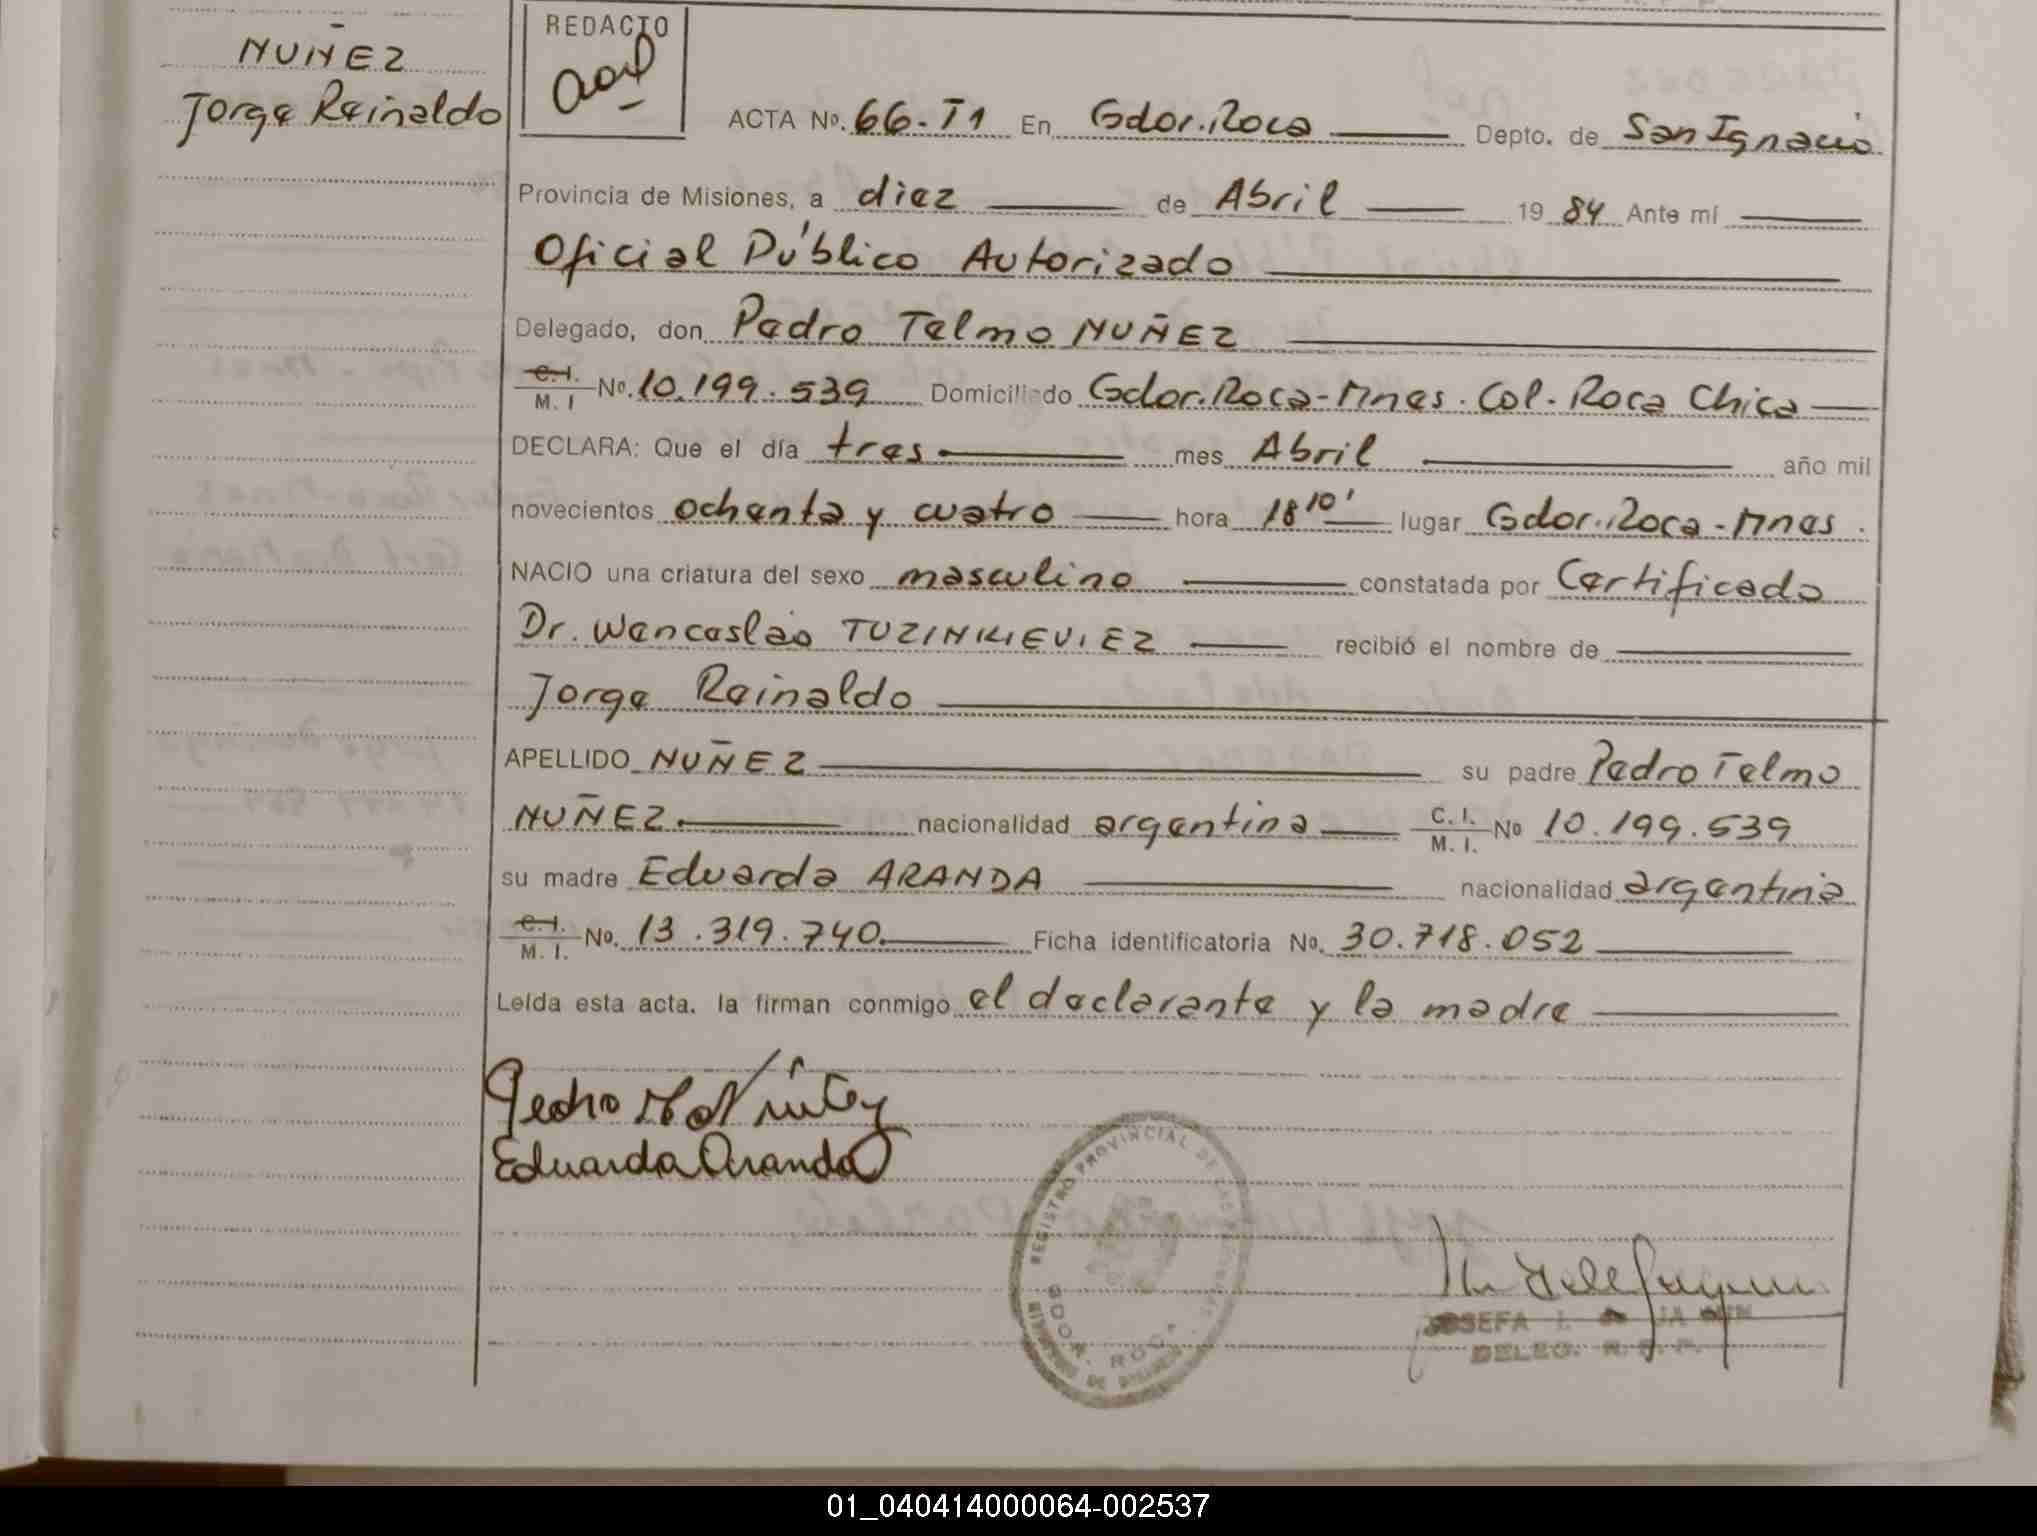 NUÑEZ
Jorge Reinaldo
REDACTO
ACTA Nº. 66-T1 En Gdor. Roca Depto. de San Ignacio
Provincia de Misiones, a diez de Abril 19 84 Ante mí
Oficial Público Autorizado
Delegado, don Pedro Telmo NUÑEZ
C.I. / M. I Nº. 10.199.539 Domiciliado Gdor. Roca-Mnes. Col. Roca Chica
DECLARA: Que el día tres mes Abril año mil
novecientos ochenta y cuatro hora 18 10' lugar Gdor. Roca-Mnes.
NACIO una criatura del sexo masculino constatada por Certificado
Dr. Wenceslao TUZINKIEVIEZ recibió el nombre de
Jorge Reinaldo
APELLIDO NUÑEZ su padre Pedro Telmo
NUÑEZ. nacionalidad argentina C. I. / M. I. Nº 10.199.539
su madre Eduarda ARANDA nacionalidad argentina
C.I. / M. I. Nº. 13.319.740. Ficha identificatoria Nº. 30.718.052
Leída esta acta. la firman conmigo el declarante y la madre
Pedro
Eduarda Aranda
REGISTRO PROVINCIAL DE LAS PERSONAS
GDOR. ROCA
JOSEFA I.
DELEG. R. P. P.
01_040414000064-002537